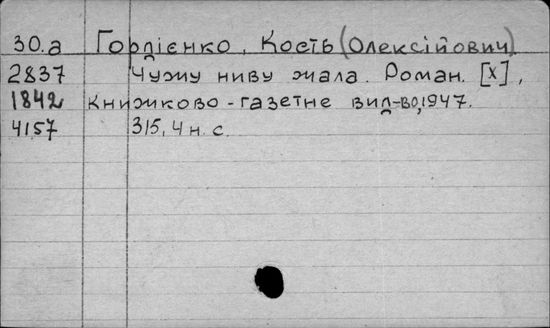 30.а Гордієнко, Кость (Олексійович)
2837 Чужу ниву жала. Роман. [Х],
1842 Книжково-газетне вид-во, 1947.
4157 315, 4 н. с.